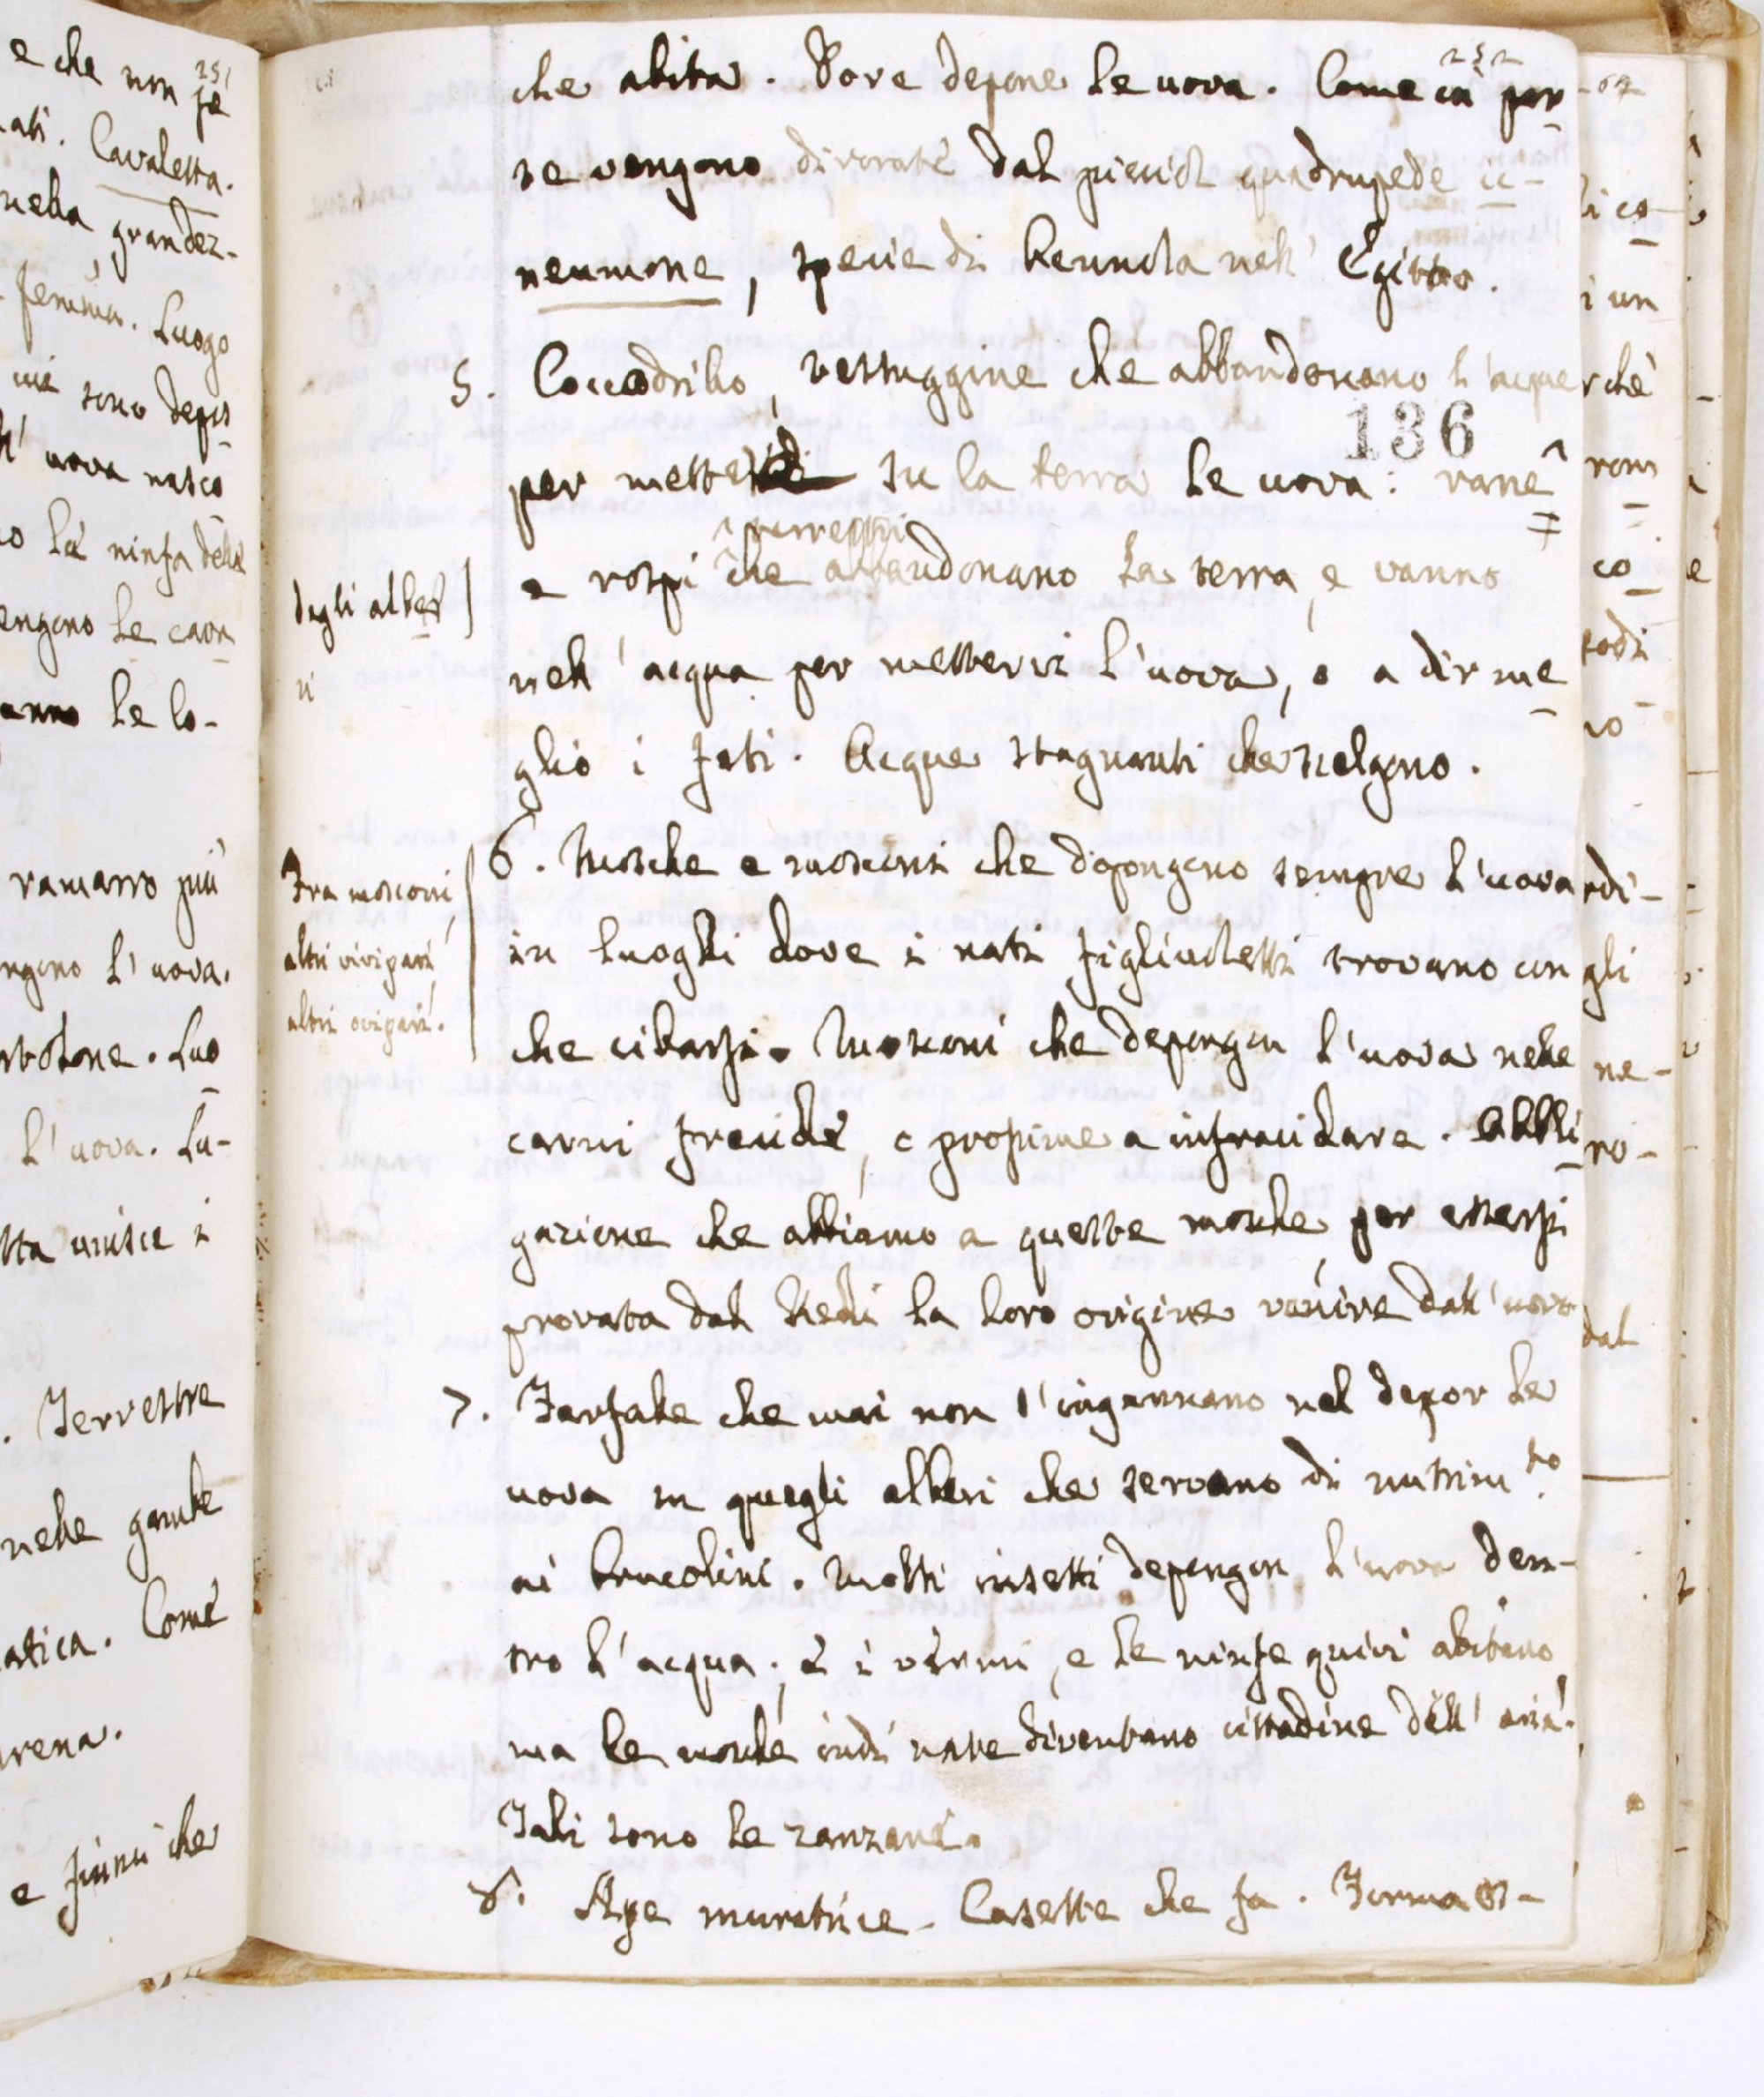 252
che abita. Dove depone le uova. Come in par-
te vengono divorate dal picciol quadrupede ic-
neumone, specie di bennola nell' Egitto.
5. Coccodrillo, testuggine che abbandonano l'acque
136
per mettere su la terra le uova: rane
terrestri
e rospi che abbandonano la terra, e vanno
degli albe-
ri
nell' acqua per mettervi l'uova, o a dir me-
glio i feti. Acque stagnanti che scelgono.
6. Mosche e mosconi che dopongono sempre l'uova
Fra mosconi,
altri vivipari,
altri ovipari.
in luoghi dove i nati figliuoletti trovano con
che cibarsi. Mosconi che depongon l'uova nelle
carni fracide, o propime a infracidare. Obbli-
gazione che abbiamo a queste mosche, per essersi
provata dal Redi la loro origine venire dall'uovo
7. Farfalle che mai non s'ingannano nel depor le
uova in quegli alberi che servano di nutrim.to
ai brucolini. Molti insetti depongon l'uova den-
tro l'acqua; e i vermi, e le ninfe quivi abitano
ma le mosche indi nate diventano cittadine dell' aria.
Tali sono le zanzare.
8. Ape muratrice. Casette che fa. Forma es-
251
e che non
ati. Cavaletta.
nella grandez-
femina. Luogo
sono depos
uova nasco
ninfa della
engono le
anno le lo-
ramarro più
ngono l'uova.
l'uova. Lu-
unisce i
. Terrestre
nelle gambe
atica. Come
rena.
che